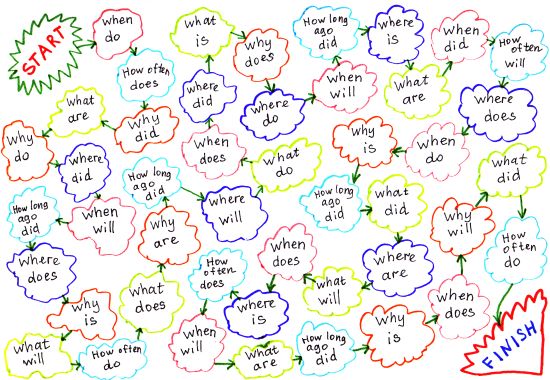 START
when
do
How often
does
why
did
what
are
why
do
where
did
when
will
How long
ago
did
where
does
why
is
what
will
How often
do
what
does
why
are
How long
ago
did
where
will
what
do
when
does
where
did
what
is
why
does
where
do
when
will
How long
ago did
where
is
what
are
when
did
How often
will
where
does
when
do
why
is
How long
ago
did
what
did
where
are
what
will
when
does
where
is
How
often
does
when
will
what
are
How long
ago
did
why
is
when
does
why
will
what
did
How
often
do
FINISH